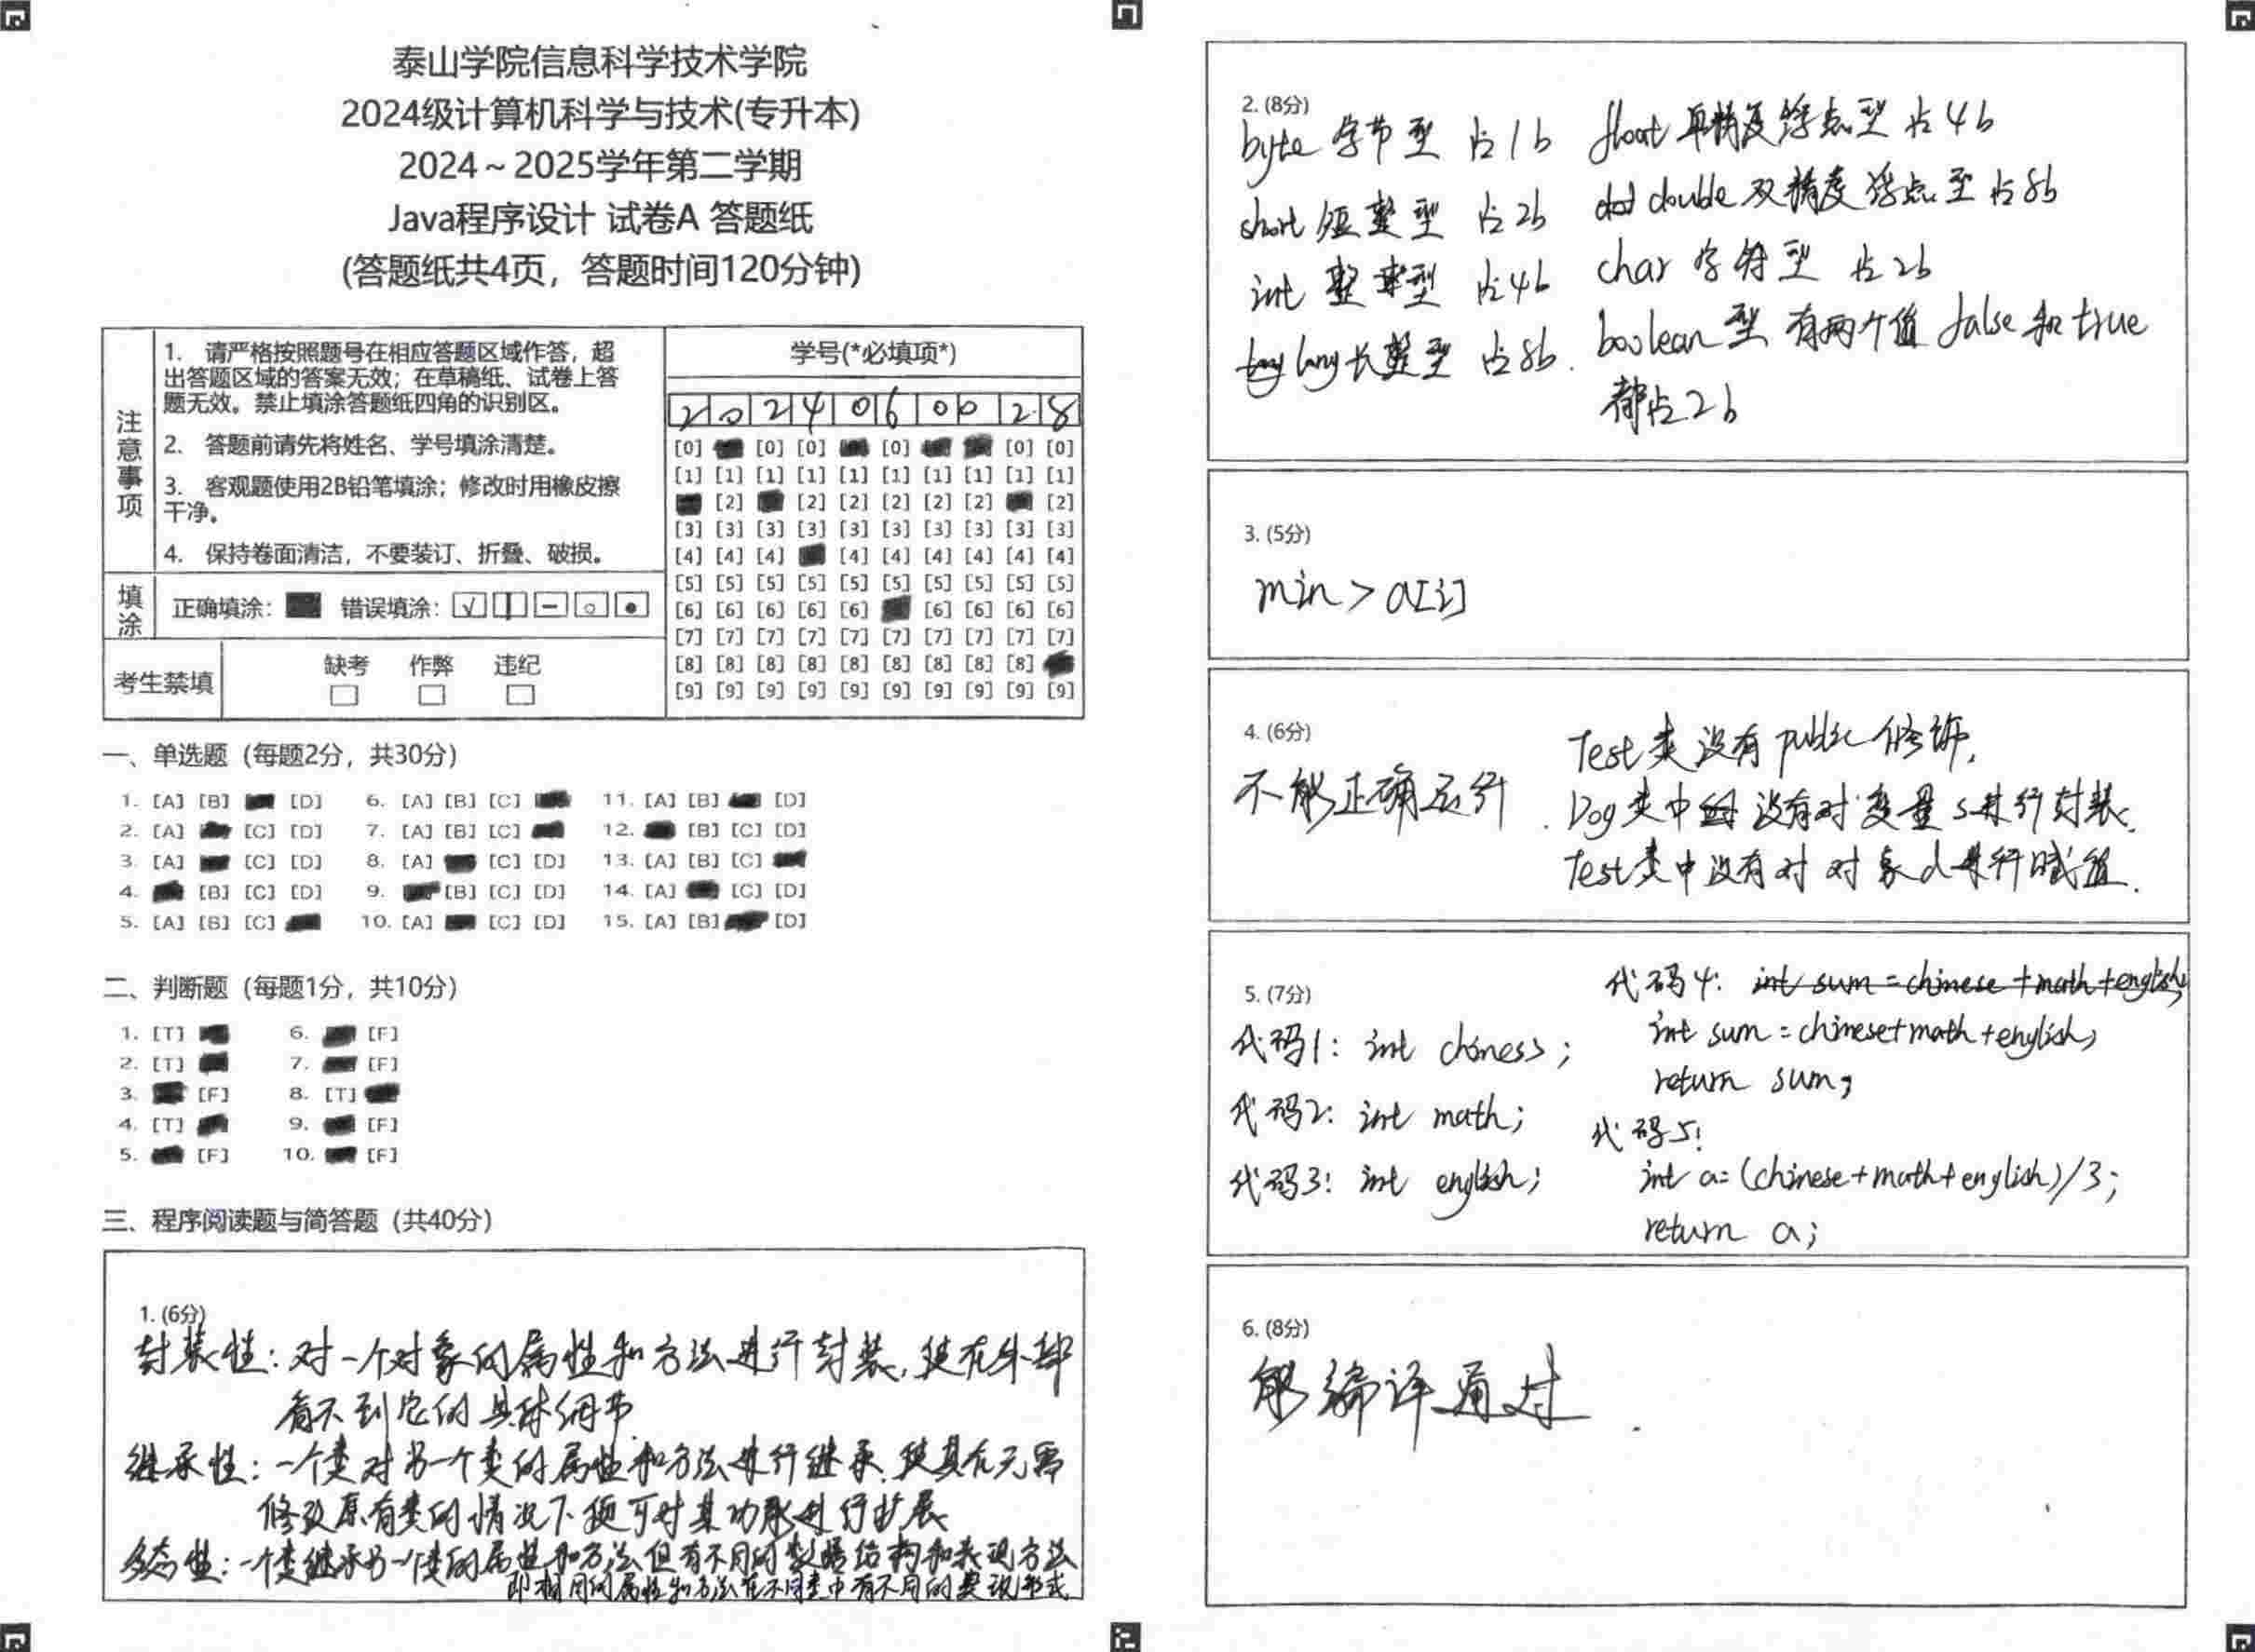 泰山学院信息科学技术学院
2024级计算机科学与技术(专升本)
2024～2025学年第二学期
Java程序设计 试卷A 答题纸
(答题纸共4页，答题时间120分钟)
注意事项
1. 请严格按照题号在相应答题区域作答，超
出答题区域的答案无效；在草稿纸、试卷上答
题无效。禁止填涂答题纸四角的识别区。
2. 答题前请先将姓名、学号填涂清楚。
3. 客观题使用2B铅笔填涂；修改时用橡皮擦
干净。
4. 保持卷面清洁，不要装订、折叠、破损。
填涂
正确填涂： 错误填涂：
考生禁填
缺考 作弊 违纪
学号(*必填项*)
2 0 2 4 0 6 0 0 2 8
[0] [0] [0] [0] [0] [0]
[1] [1] [1] [1] [1] [1] [1] [1] [1] [1]
[2] [2] [2] [2] [2] [2] [2]
[3] [3] [3] [3] [3] [3] [3] [3] [3] [3]
[4] [4] [4] [4] [4] [4] [4] [4] [4]
[5] [5] [5] [5] [5] [5] [5] [5] [5] [5]
[6] [6] [6] [6] [6] [6] [6] [6] [6]
[7] [7] [7] [7] [7] [7] [7] [7] [7] [7]
[8] [8] [8] [8] [8] [8] [8] [8] [8]
[9] [9] [9] [9] [9] [9] [9] [9] [9] [9]
一、单选题（每题2分，共30分）
1. [A] [B] [D] 6. [A] [B] [C] 11. [A] [B] [D]
2. [A] [C] [D] 7. [A] [B] [C] 12. [B] [C] [D]
3. [A] [C] [D] 8. [A] [C] [D] 13. [A] [B] [C]
4. [B] [C] [D] 9. [B] [C] [D] 14. [A] [C] [D]
5. [A] [B] [C] 10. [A] [C] [D] 15. [A] [B] [D]
二、判断题（每题1分，共10分）
1. [T] 6. [F]
2. [T] 7. [F]
3. [F] 8. [T]
4. [T] 9. [F]
5. [F] 10. [F]
三、程序阅读题与简答题（共40分）
1. (6分)
封装性：对一个对象的属性和方法进行封装，使在外部
看不到它的具体细节
继承性：一个类对另一个类的属性和方法进行继承，使其在无需
修改原有类的情况下便可对其功能进行扩展
多态性：一个类继承另一个类的属性和方法但有不同的数据结构和表现方法
即相同的属性和方法在不同类中有不同的表现形式
2. (8分)
byte 字节型 占1b float 单精度浮点型 占4b
short 短整型 占2b double 双精度浮点型 占8b
int 整型 占4b char 字符型 占2b
long 长整型 占8b. boolean型 有两个值 false和true
都占2b
3. (5分)
min > a[i]
4. (6分)
不能正确运行
Test类没有public修饰，
Dog类中没有对变量s进行封装.
Test类中没有对对象d进行赋值.
5. (7分)
代码1: int chiness;
代码2: int math;
代码3: int english;
代码4: int sum = chinese + math + english;
int sum = chinese + math + english;
return sum;
代码5:
int a = (chinese + math + english) / 3;
return a;
6. (8分)
能编译通过.